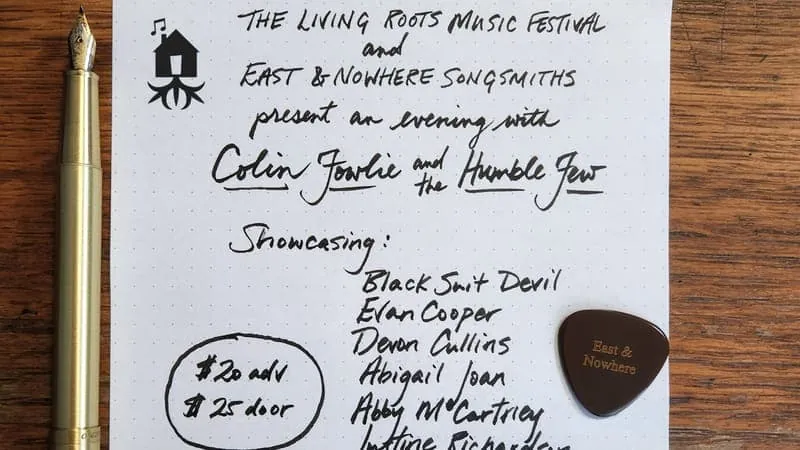 THE LIVING ROOTS MUSIC FESTIVAL
and
EAST & NOWHERE SONGSMITHS
present an evening with
Colin Fowlie and the Humble Few
Showcasing:
Black Suit Devil
Evan Cooper
Devon Cullins
Abigail Joan
Abby McCartney
Richardson
$20 adv
$25 door
East &
Nowhere